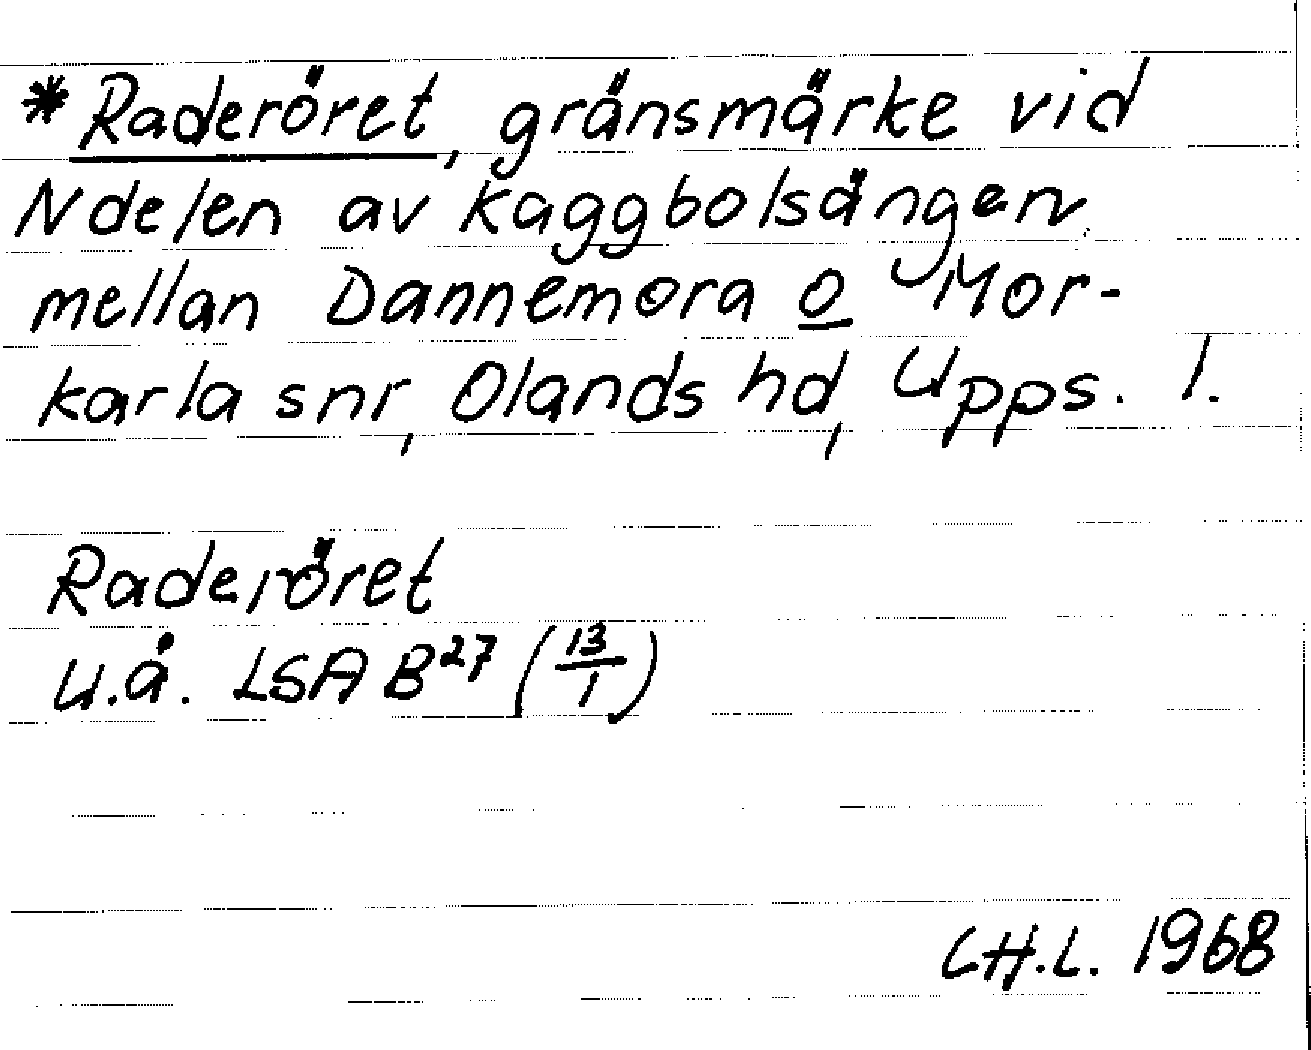 *Raderöret, gränsmärke vid
N delen av Kaggbolsängen
mellan Dannemora o Mor-
karla snr, Olands hd, Upps. l.
Raderöret
u.å. LSA B27 (13/1)
C.H.L. 1968